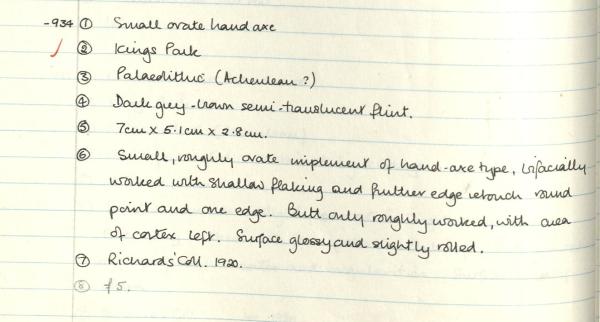 -934 ① Small ovate hand axe
② Kings Park
③ Palaeolithic (Acheulean?)
④ Dark grey-brown semi-translucent flint.
⑤ 7cm x 5.1cm x 2.8cm.
⑥ Small, roughly ovate implement of hand-axe type, bifacially
worked with shallow flaking and further edge retouch round
point and one edge. Butt only roughly worked, with area
of cortex left. Surface glossy and slightly rolled.
⑦ Richards' Coll. 1920.
⑧ £5.